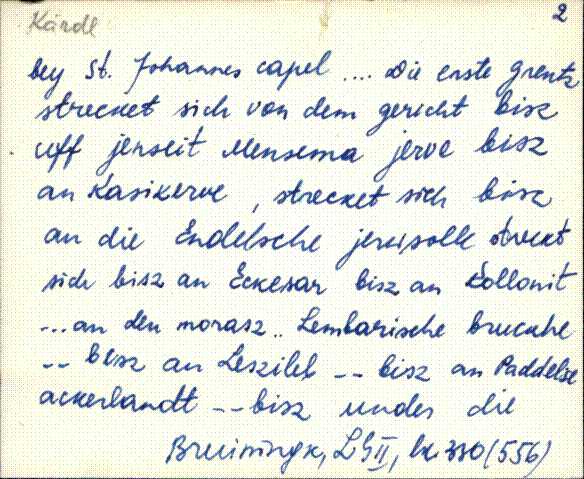 Kärdl
2
bey St. Johannes capel .... Die erste grentz
strecket sich von dem gericht bisz
uff jenseit Mensema jerve bisz
an Kasikerve, strecket sich bisz
an die Endelsche streckt
sich bisz an Eckesar bisz an Kollonit
... an den morasz .. Lembarische bruckhe
-- bisz an Leszileb -- bisz an Paddelse
ackerlandt -- bisz under die
LG II, lk. 330 (556)